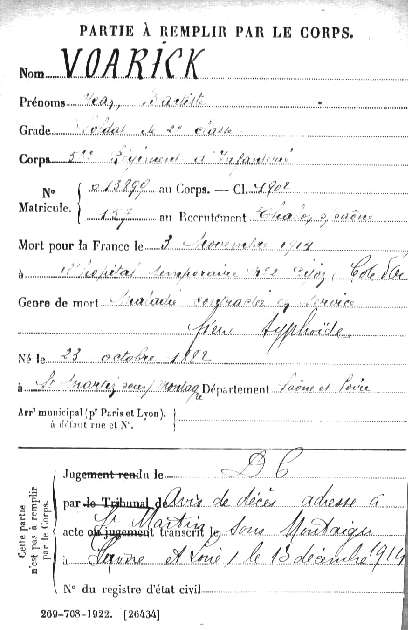 PARTIE À REMPLIR PAR LE CORPS.
Nom VOARICK
Prénoms Jean, Baptiste
Grade Soldat de 2e classe
Corps Régiment d'Infanterie
No Matricule. { 013899 au Corps. — Cl. 1902
127 au Recrutement Chalon s/ saône
Mort pour la France le 3 Novembre 1914
à l'hôpital temporaire no2 Côte d'Or
Genre de mort Maladie contractée en service
fièvre typhoïde
Né le 23 octobre 1882
à St Martin sous Montaigu Département Saône et Loire
Arrt municipal (pr Paris et Lyon), à défaut rue et No. {
Cette partie n'est pas à remplir par le Corps.
Jugement rendu le DC
par le Tribunal de Avis de décès adressé à
acte ou jugement transcrit le St Martin sous Montaigu
à Saône et Loire le 13 décembre 1914
No du registre d'état civil
269-708-1922. [26434]